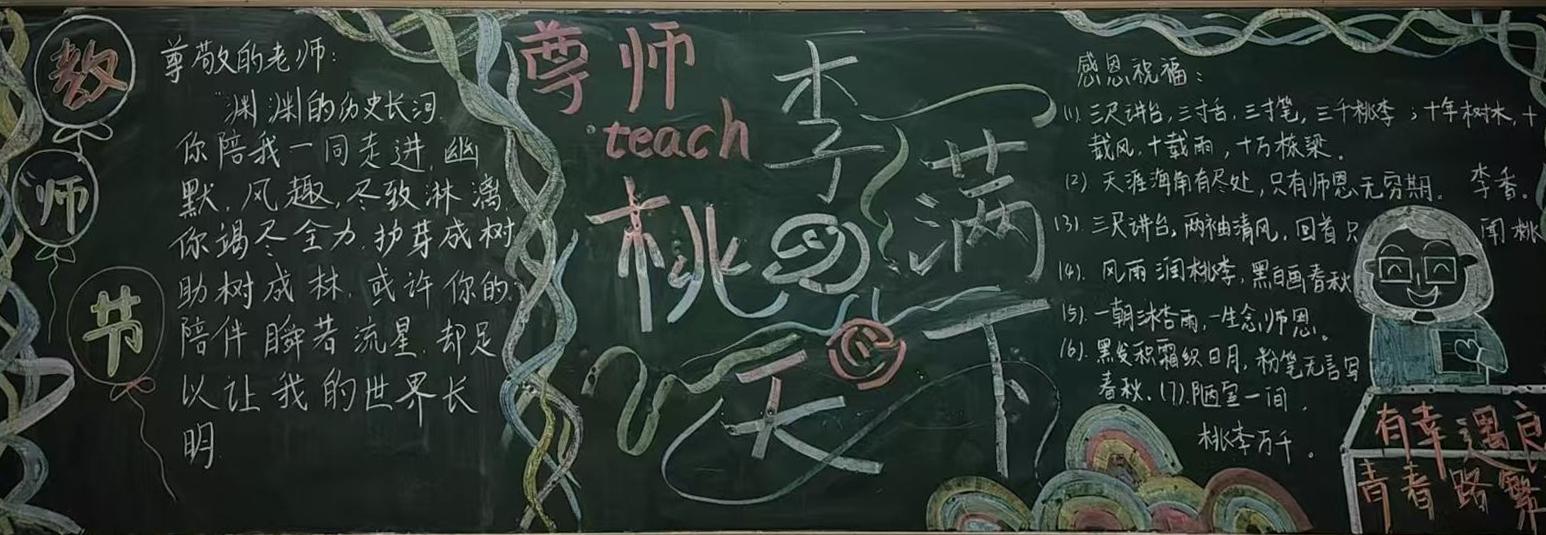 教
师
节
尊敬的老师:
"渊渊的历史长河,
你陪我一同走进,幽
默,风趣,尽致淋漓,
你竭尽全力,护芽成树
助树成林,或许你的
陪伴瞬若流星,却足
以让我的世界长
明
尊师
teach
桃李满
天下
感恩祝福:
(1).三尺讲台,三寸舌,三寸笔,三千桃李;十年树木,十
载风,十载雨,十万栋梁。
(2) 天涯海角有尽处,只有师恩无穷期。
(3).三尺讲台,两袖清风,回首只闻桃
李香。
(4).风雨润桃李,黑白画春秋
(5).一朝沐杏雨,一生念师恩。
(6).黑发积霜织日月,粉笔无言写
春秋.(7).陋室一间,
桃李万千。
有幸遇良
青春路繁